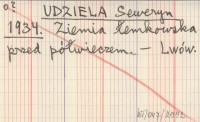 UDZIELA Seweryn
1934. Ziemia łemkowska
przed półwieczem. – Lwów.